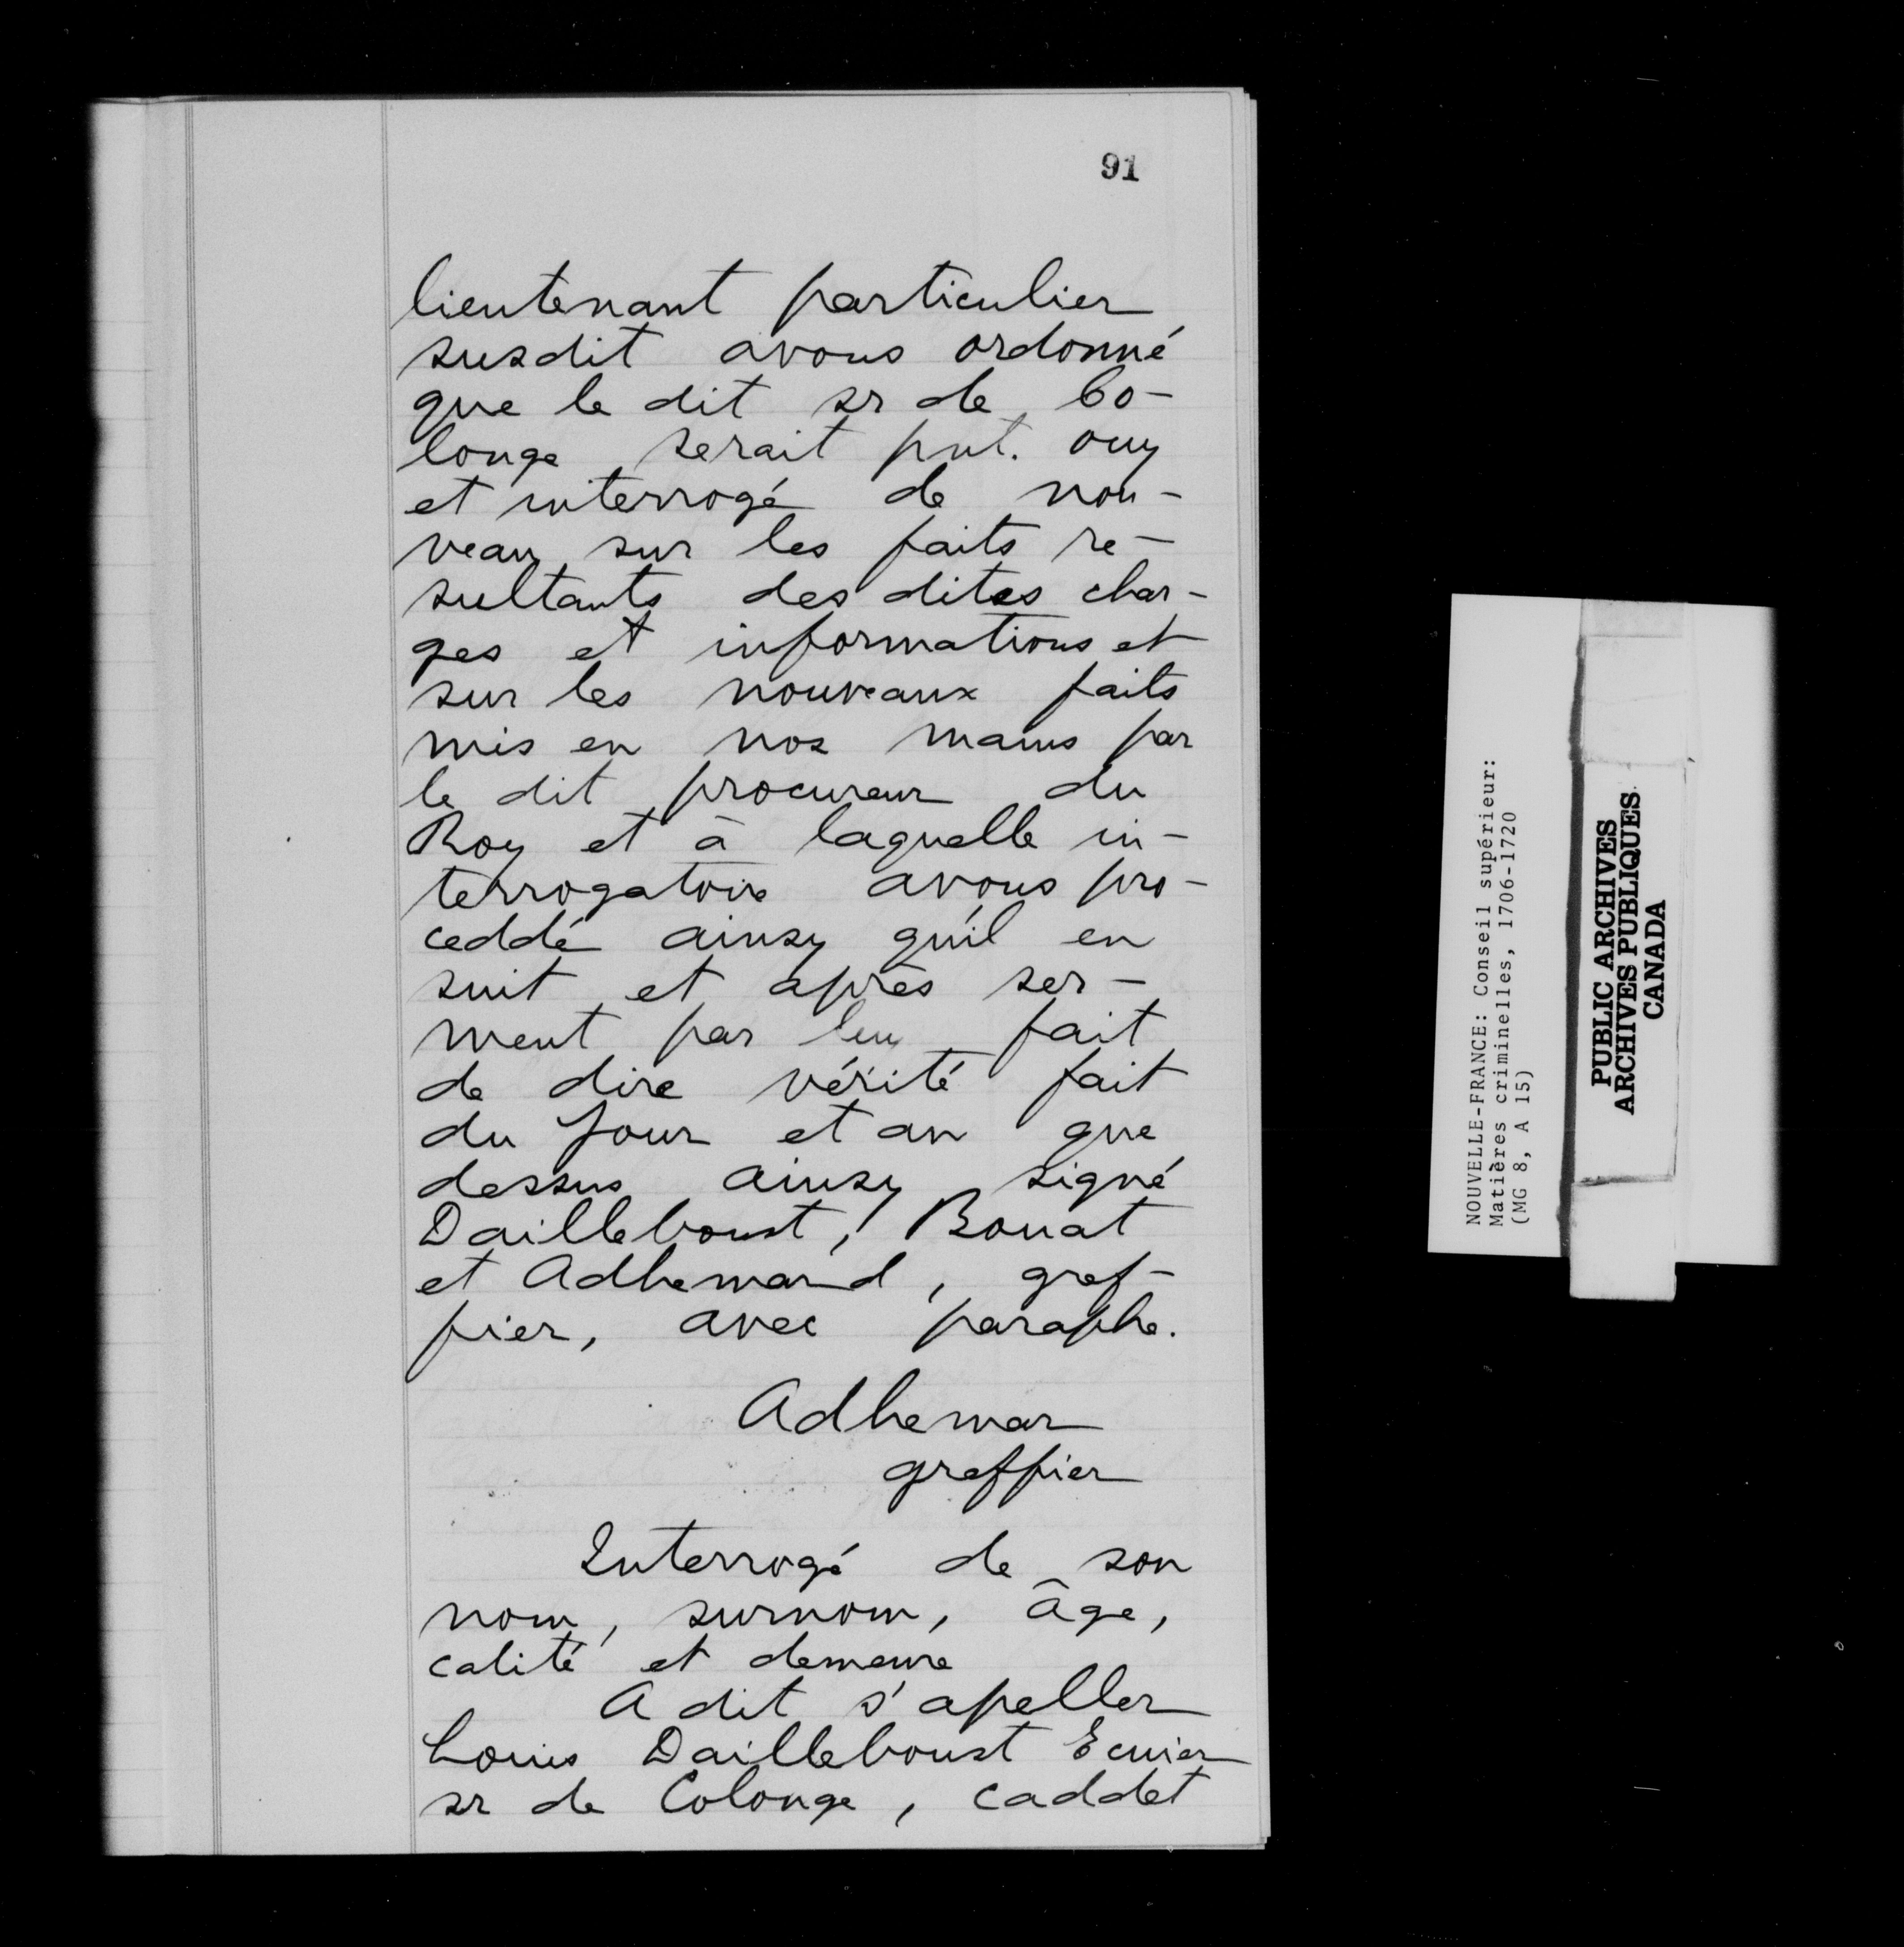 91
lieutenant particulier
susdit avons ordonné
que le dit sr de Co-
longe serait pnt. ouy
et interrogé de nou-
veau sur les faits re-
sultants des dites char-
ges et informations et
sur les nouveaux faits
mis en nos mains par
le dit procureur du
Roy et à laquelle in-
terrogatoire avons pro-
ceddé ainsy qu'il en
suit et après ser-
ment par luy fait
de dire vérité fait
du jour et an que
dessus ainsy signé
Dailleboust, Bouat
et Adhemard, gref-
fier, avec paraphe.
Adhemar
greffier
Interrogé de son
nom, surnom, âge,
calité et demeure
A dit s'apeller
Louis Dailleboust Ecuier
sr de Colonge, caddet
NOUVELLE-FRANCE: Conseil supérieur:
Matières criminelles, 1706-1720
(MG 8, A 15)
PUBLIC ARCHIVES
ARCHIVES PUBLIQUES
CANADA